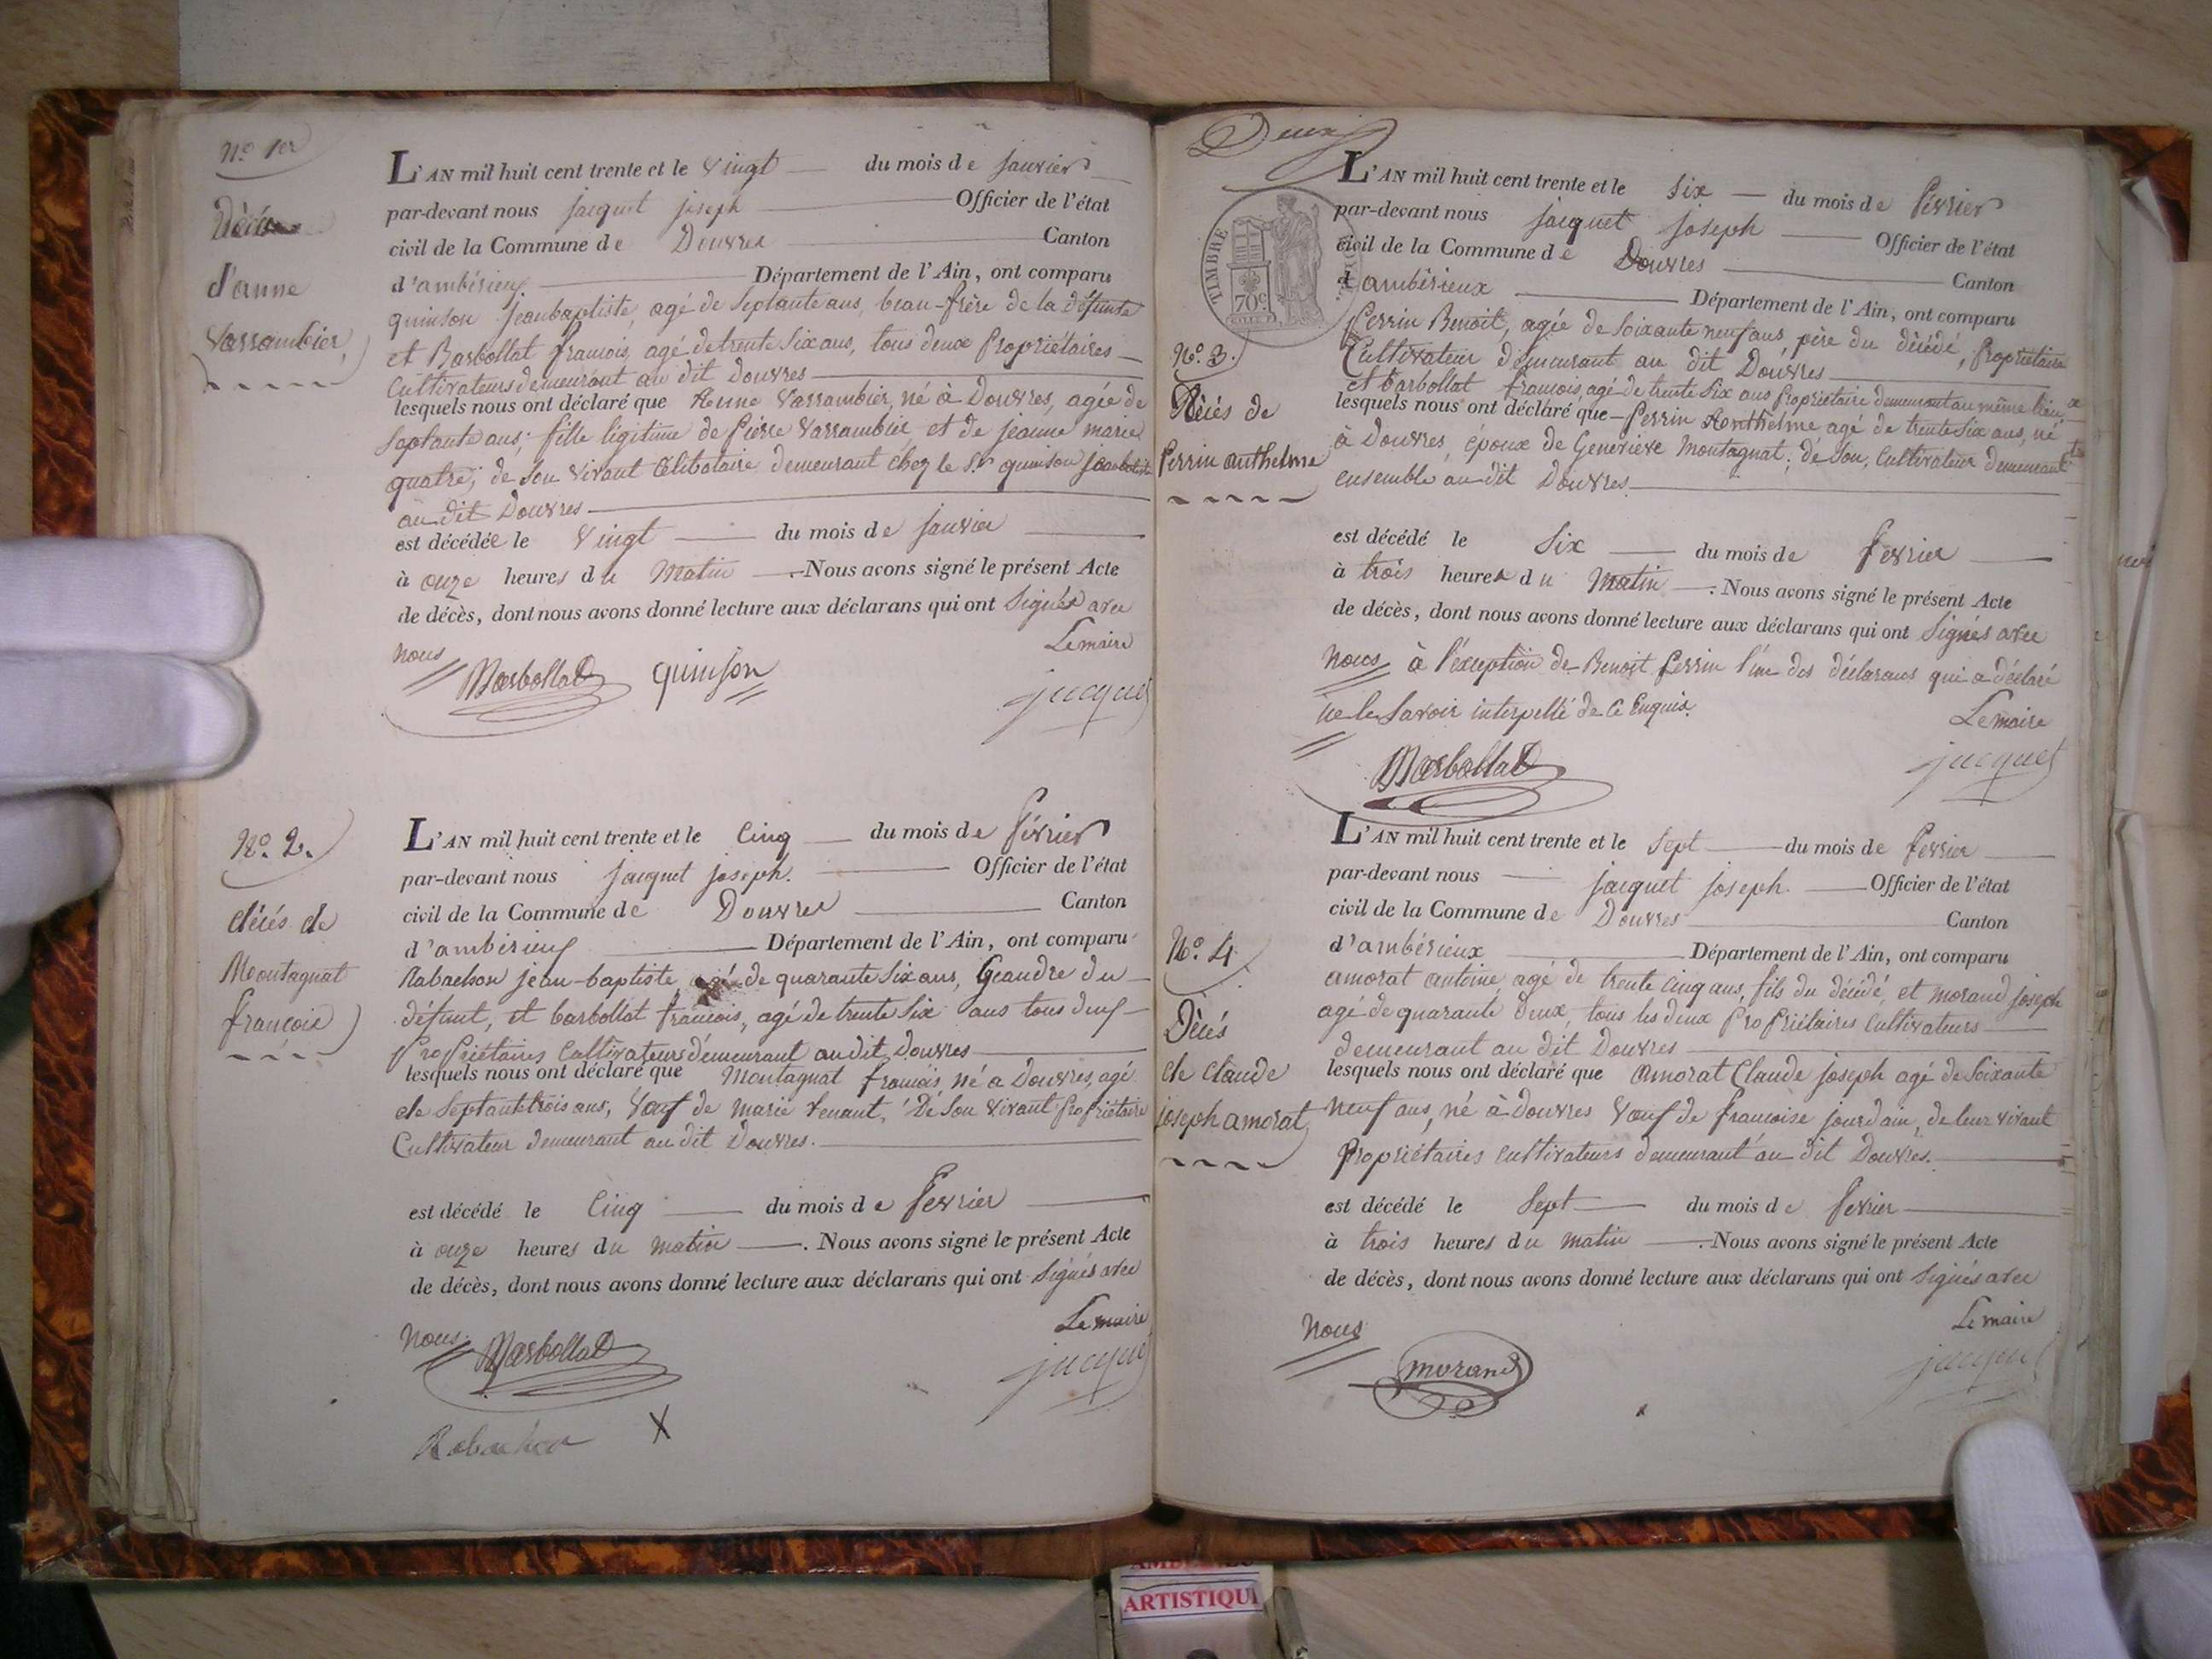 N.o 1er
Décès
d'anne
Varrambier
L'AN mil huit cent trente et le Vingt du mois de Janvier
par-devant nous jacquet joseph Officier de l'état
civil de la Commune de Douvres Canton
d'ambérieux Département de l'Ain, ont comparu
quinson Jeanbaptiste, agé de Septante ans, beau-frère de la défunte
et Barbollat francois, agé de trente Six ans, tous deux Propriétaires
Cultivateurs demeurant au dit Douvres
lesquels nous ont déclaré que Anne Varrambier, né à Douvres, agée de
Septante ans; fille légitime de Pierre Varrambier et de jeanne marie
quatre; de Son Vivant Célibataire demeurant chez le S.r quinson Jeanbatiste
au dit Douvres
est décédée le Vingt du mois de janvier
à onze heures du Matin Nous avons signé le présent Acte
de décès, dont nous avons donné lecture aux déclarans qui ont Signés avec
nous Le maire
Barbollat quinson jacquet
N.o 2.
décès de
Montagnat
françois
L'AN mil huit cent trente et le Cinq du mois de Février
par-devant nous jacquet joseph. Officier de l'état
civil de la Commune de Douvres Canton
d'ambérieux Département de l'Ain, ont comparu
Rabachon jean-baptiste, agé de quarante Six ans, Geandre du
défunt, et barbollat francois, agé de trente Six ans tous deux
Propriétaires Cultivateurs demeurant au dit Douvres
lesquels nous ont déclaré que Montagnat francois né a Douvres, agé
de Septante trois ans, Vœuf de Marie Venant, De Son Vivant Propriétaire
Cultivateur demeurant au dit Douvres.
est décédé le Cinq du mois de Fevrier
à onze heures du matin. Nous avons signé le présent Acte
de décès, dont nous avons donné lecture aux déclarans qui ont Signés avec
nous. Le maire
Barbollat jacquet
Rabachon X
Deux
TIMBRE ROYAL
70c.
L'AN mil huit cent trente et le Six du mois de Février
par-devant nous jacquet joseph Officier de l'état
civil de la Commune de Douvres Canton
d'ambérieux Département de l'Ain, ont comparu
N.o 3.
Décès de
Perrin anthelme
Perrin Benoit, agée de Soixante neuf ans père du décédé, Propriétaire
Cultivateur demeurant au dit Douvres
et barbollat francois, agé de trente Six ans Propriétaire demeurant au même lieu
lesquels nous ont déclaré que Perrin Anthelme, agé de trente Six ans, né
à Douvres, époux de Geneviève Montagnat; de Son, Cultivateur demeurant
ensemble au dit Douvres.
est décédé le Six du mois de fevrier
à trois heures du Matin. Nous avons signé le présent Acte
de décès, dont nous avons donné lecture aux déclarans qui ont Signés avec
Nous à l'exception de Benoit Perrin l'un des déclarans qui a déclaré
ne le Savoir interpellé de ce Enquis.
Le maire
Barbollat jacquet
L'AN mil huit cent trente et le Sept du mois de fevrier
par-devant nous jacquet joseph. Officier de l'état
civil de la Commune de Douvres Canton
d'ambérieux Département de l'Ain, ont comparu
N.o 4.
Décès
de Claude
joseph amorat
amorat antoine, agé de trente cinq ans, fils du décédé, et morand joseph
agé de quarante deux, tous les deux Propriétaires Cultivateurs
demeurant au dit Douvres
lesquels nous ont déclaré que Amorat Claude joseph agé de Soixante
neuf ans, né à Douvres Vœuf de francoise jourdain, de leur vivant
Propriétaires Cultivateurs demeurant au dit Douvres.
est décédé le Sept du mois de fevrier
à trois heures du matin. Nous avons signé le présent Acte
de décès, dont nous avons donné lecture aux déclarans qui ont Signés avec
nous Le maire
morand jacquet
ARTISTIQU